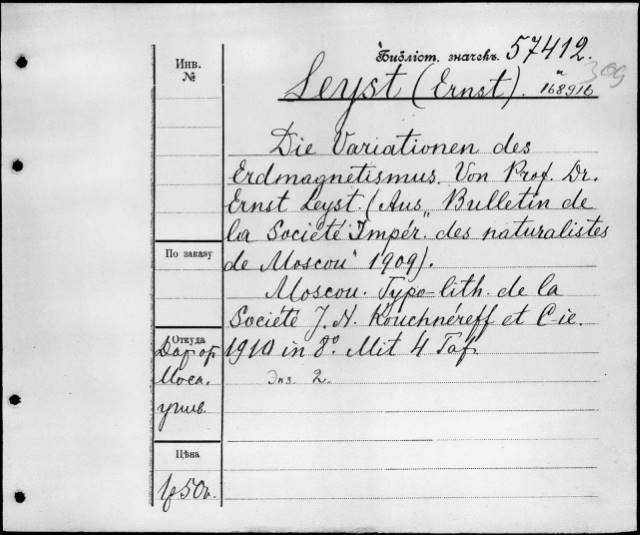 Инв.
№
Библіот. значекъ. 57412.
309
Leyst (Ernst). " 168916
Die Variationen des
Erdmagnetismus. Von Prof. Dr.
Ernst Leyst. (Aus „Bulletin de
la Société Impér. des naturalistes
de Moscou" 1909).
Moscou. Typo-lith. de la
Société J. N. Kouchnéreff et C-ie.
1910 in 8º. Mit 4 Taf.
Экз. 2.
По заказу
Откуда
Дар от
Моск.
унив.
Цѣна
1р50к.